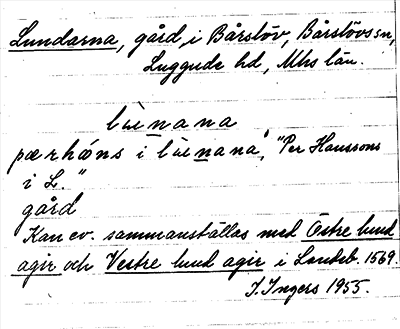 Lundarna, gård, i Bårslöv, Bårslövs sn,
Luggude hd, Mhs län.
pærhǿns i
"Per Hanssons
i L."
gård
Kan ev. sammanställas med Östre lund
agir och Vestre lund agir i Landsb. 1569.
I. Ingers 1955.